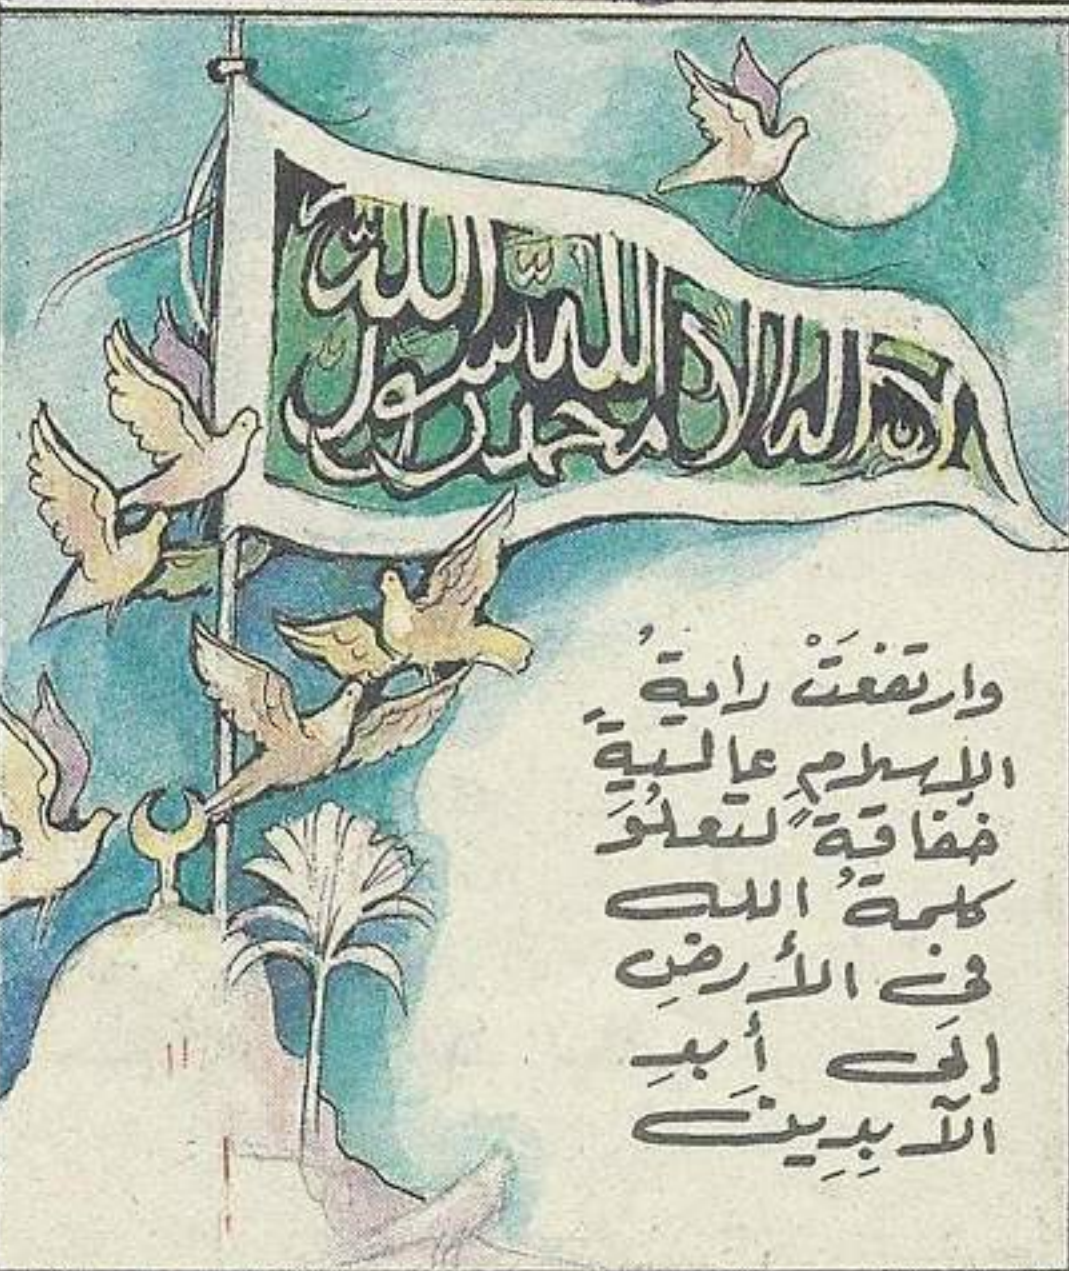 لا إله إلا الله محمد رسول الله
وارتفعَتْ رايةُ
الإسلامِ عاليةً
خفاقةً لتعلُوَ
كلمةُ الله
فى الأرضِ
إلَى أَبدِ
الآبِدِينَ